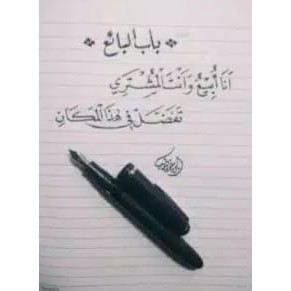 * باب البائع *
أنا أبيع وأنت المشتري
تفضل في هذا المكان